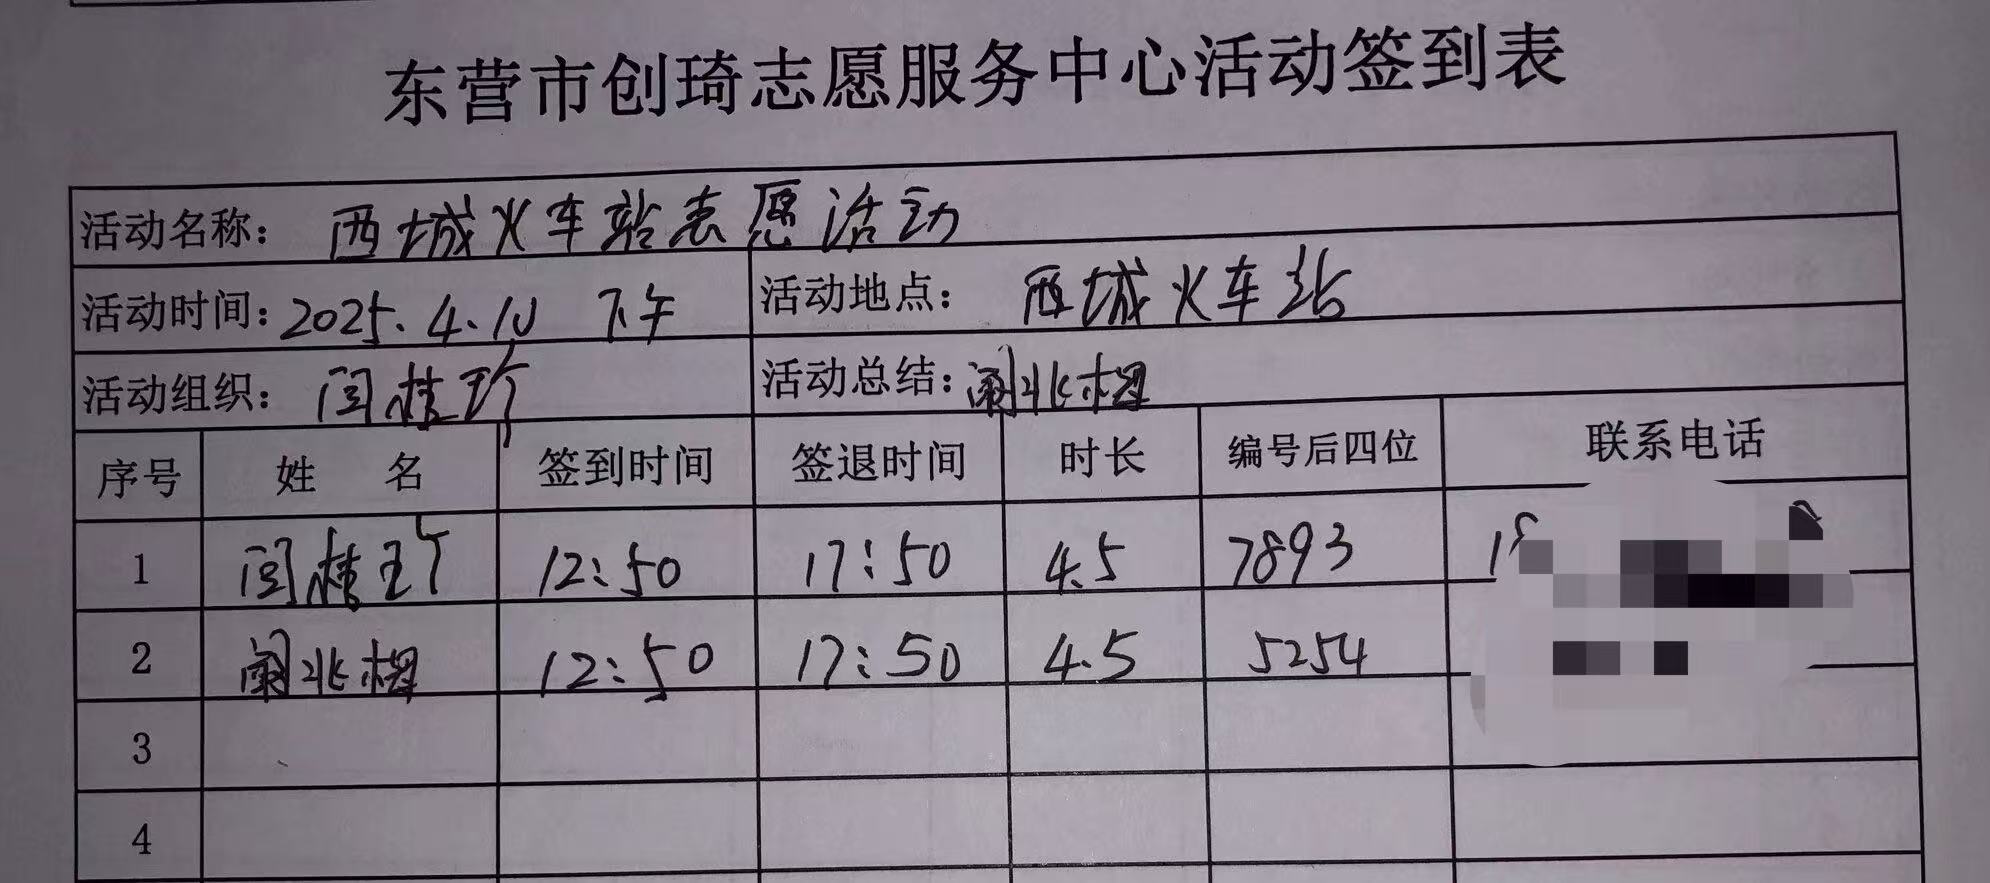 东营市创琦志愿服务中心活动签到表
活动名称: 西城火车站志愿活动
活动时间: 2025.4.10 下午 活动地点: 西城火车站
活动组织: 闫桂珍 活动总结:
序号 姓 名 签到时间 签退时间 时长 编号后四位 联系电话
1 闫桂珍 12:50 17:50 4.5 7893
2 12:50 17:50 4.5 5254
3
4